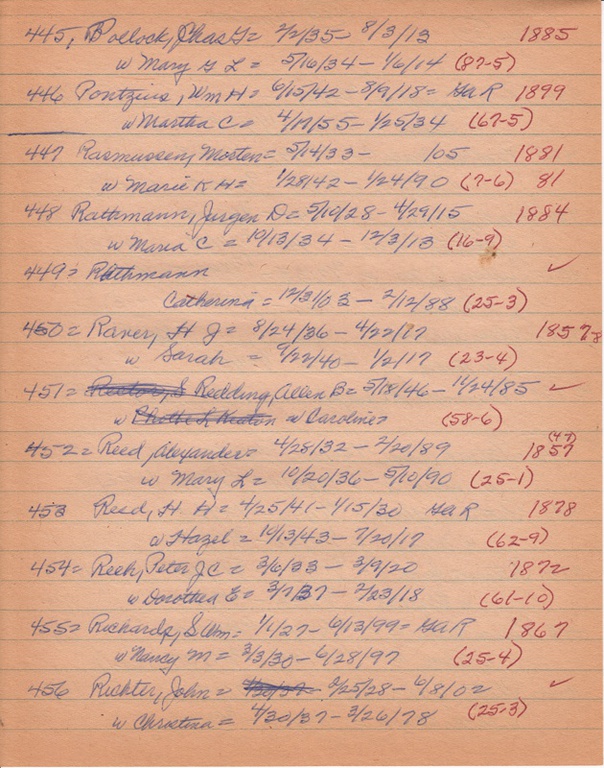 445, Pollock, Chas G = 2/2/35 - 8/3/13 1885
w Mary G L = 5/16/34 - 1/6/14 (87-5)
446 Pontzius, Wm H = 6/15/42 - 8/9/18 = GaR 1899
w Martha C = 4/17/55 - 1/25/34 (67-5)
447 Rasmussen, Morten = 5/14/33 - /05 1881
w Marie K H = 1/28/42 - 1/24/90 (7-6) 81
448 Rathmann, Jurgen D = 5/10/28 - 4/29/15 1884
w Maria C = 10/13/34 - 12/3/13 (16-9)
449 = Rathmann ✓
Catherina = 12/31/03 - 2/12/88 (25-3)
450 = Raver, H J = 8/24/36 - 4/22/17 1857-8
w Sarah = 9/22/40 - 1/2/17 (23-4)
451 = Rector, S Redding, Allen B = 5/18/46 - 11/24/85 ✓
w w Caroline = (58-6)
452 = Reed, Alexander = 4/28/32 - 2/20/89 1857 (47)
w Mary L = 10/20/36 - 5/10/90 (25-1)
453 Reed, H H = 4/25/41 - 1/15/30 GaR 1878
w Hazel = 10/13/43 - 7/20/17 (62-9)
454 = Reeh, Peter J C = 3/6/33 - 3/9/20 1872
w Dorothea E = 3/7/37 - 2/23/18 (61-10)
455 = Richards, S Wm = 1/1/27 - 6/13/99 = GaR 1867
w Nancy M = 3/3/30 - 6/28/97 (25-4)
456 Richter, John = 9/25/28 - 6/8/02 ✓
w Christina = 4/30/37 - 3/26/78 (25-3)